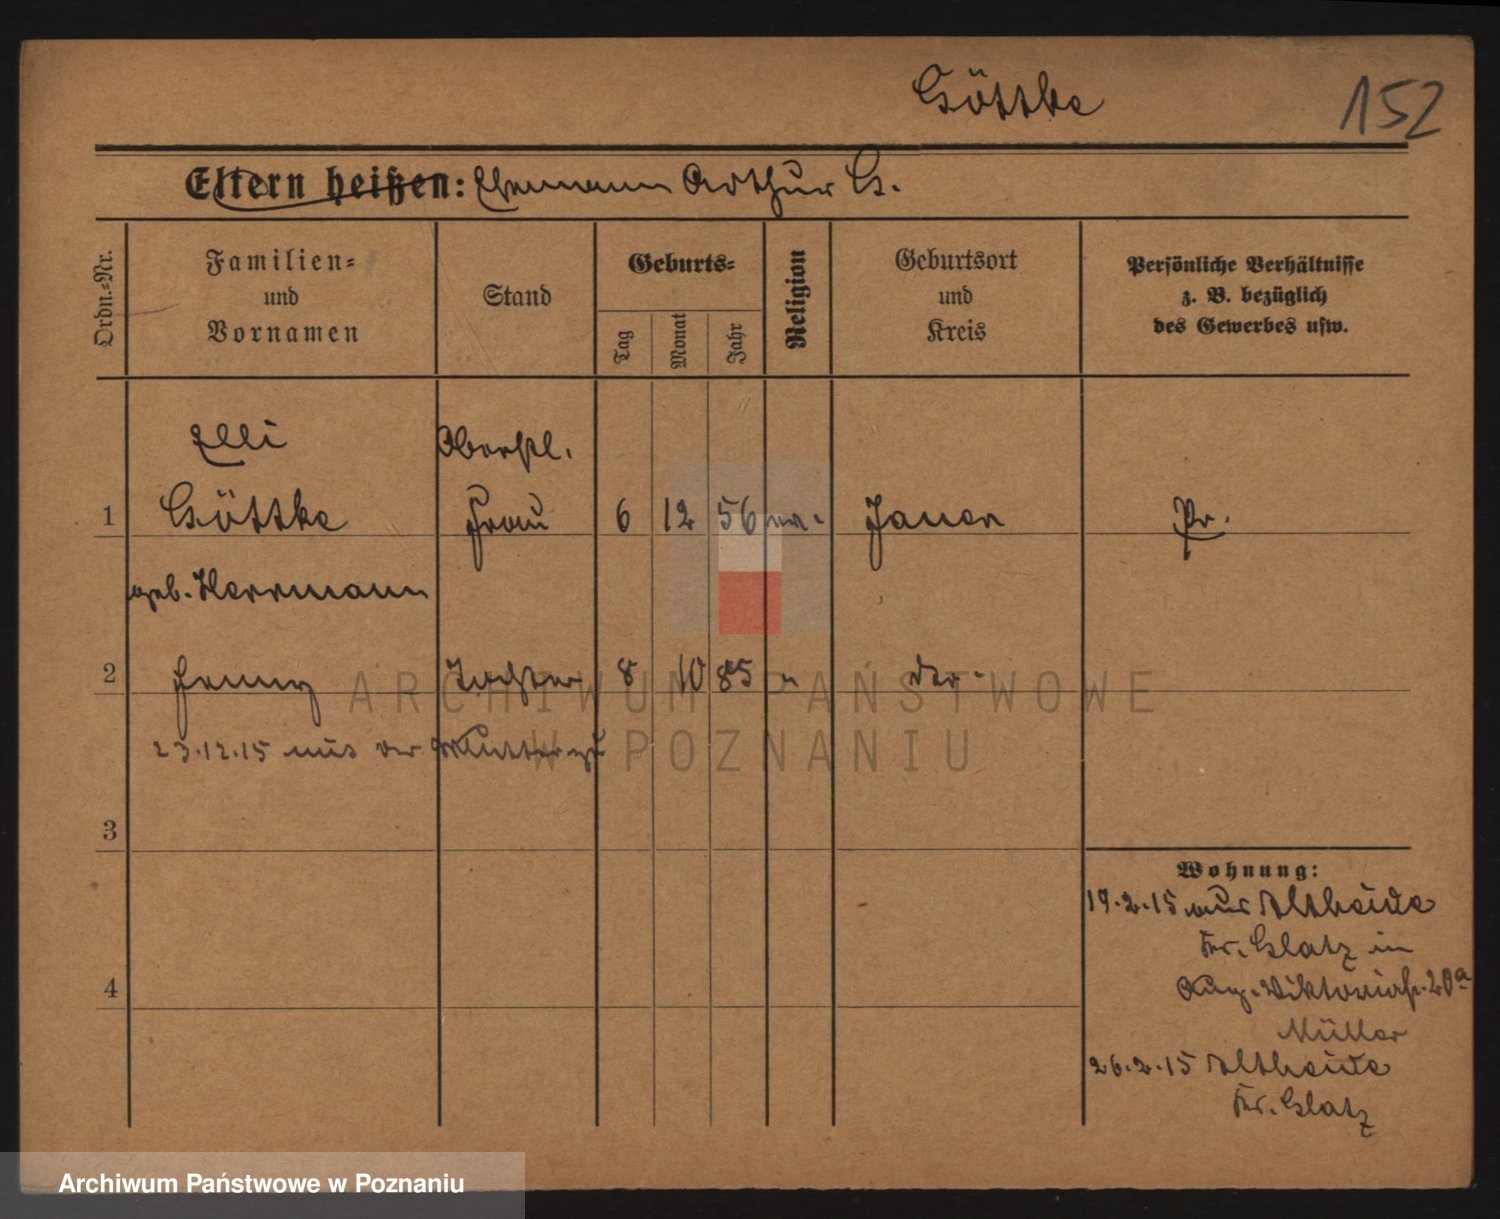 Göttke
152
Eltern heißen: Ehemann Arthur G.
Ordn.=Nr.
Familien=
und
Vornamen
Stand
Geburts=
Tag
Monat
Jahr
Religion
Geburtsort
und
Kreis
Persönliche Verhältnisse
z. B. bezüglich
des Gewerbes usw.
Elli Oberstl.
1 Göttke Frau 6 12 56 ev. Jauer Pr.
geb. Herrmann
2 Fenny Tochter 8 10 85 " Der
23.12.15 mit der Mutter
3
4
Wohnung:
19.2.15 aus Altheide
Kr. Glatz in
Aug. Viktoriastr. 20a
Müller
26.2.15 Altheide
Kr. Glatz
ARCHIWUM PAŃSTWOWE
W POZNANIU
Archiwum Państwowe w Poznaniu